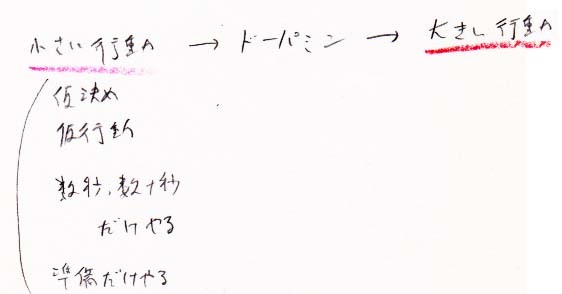 小さい行動 → ドーパミン → 大きい行動
仮決め
仮行動
数秒、数十秒
だけやる
準備だけやる